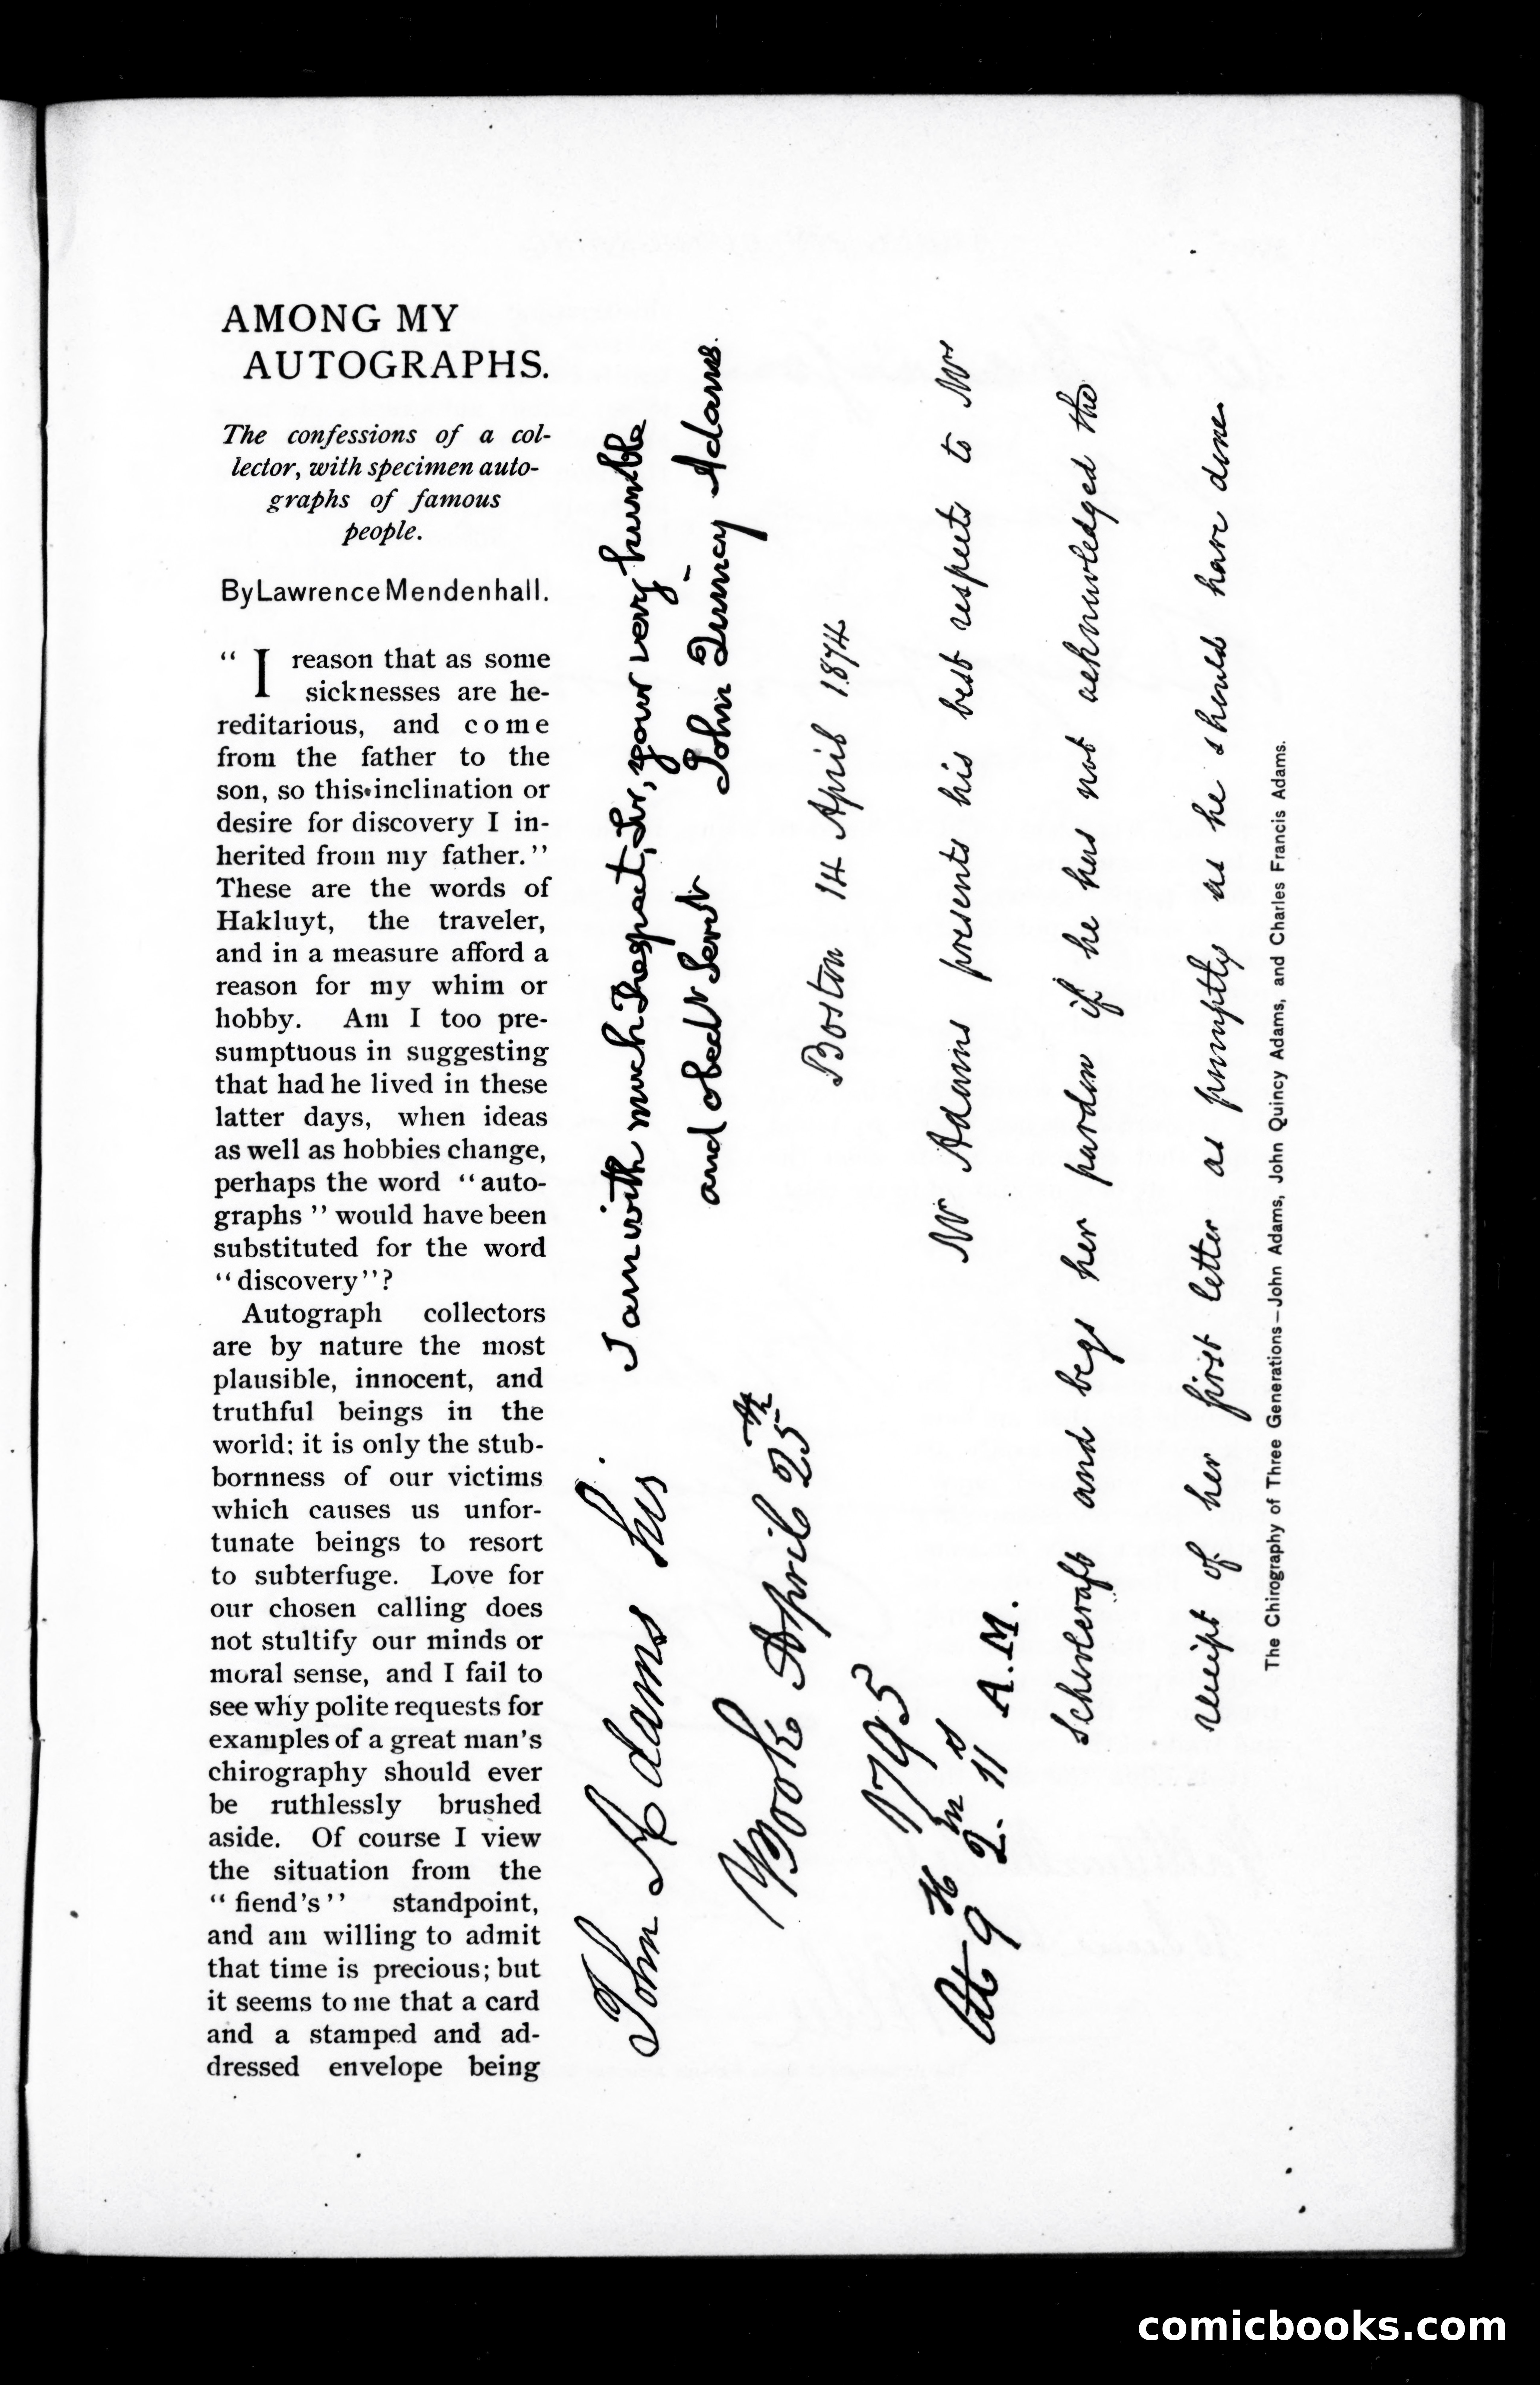 AMONG MY
AUTOGRAPHS.
The confessions of a col-
lector, with specimen auto-
graphs of famous
people.
By Lawrence Mendenhall.
“I reason that as some
sicknesses are he-
reditarious, and come
from the father to the
son, so this inclination or
desire for discovery I in-
herited from my father.”
These are the words of
Hakluyt, the traveler,
and in a measure afford a
reason for my whim or
hobby. Am I too pre-
sumptuous in suggesting
that had he lived in these
latter days, when ideas
as well as hobbies change,
perhaps the word “auto-
graphs” would have been
substituted for the word
“discovery”?
Autograph collectors
are by nature the most
plausible, innocent, and
truthful beings in the
world; it is only the stub-
bornness of our victims
which causes us unfor-
tunate beings to resort
to subterfuge. Love for
our chosen calling does
not stultify our minds or
moral sense, and I fail to
see why polite requests for
examples of a great man’s
chirography should ever
be ruthlessly brushed
aside. Of course I view
the situation from the
“fiend’s” standpoint,
and am willing to admit
that time is precious; but
it seems to me that a card
and a stamped and ad-
dressed envelope being
John Adams his
Book April 25th
1795
At 9 H 2 m 11 s A.M.
I am with much Respect, Sir, your very humble
and obedt Servt
John Quincy Adams.
Boston 14 April 1874
Mr Adams presents his best respects to Mrs
Schoolcraft and begs her pardon if he has not acknowledged the
receipt of her first letter as promptly as he should have done.
The Chirography of Three Generations—John Adams, John Quincy Adams, and Charles Francis Adams.
comicbooks.com